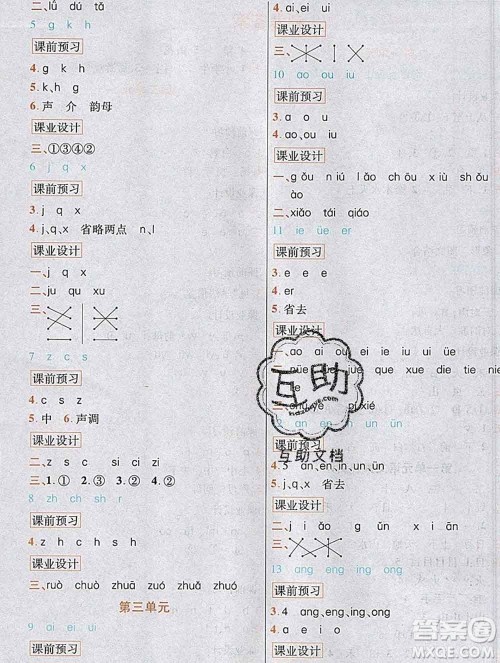 二、lǘ dú tǎ
课前预习
4. g k h
5. k、h g
6. 声 介 韵母
课业设计
三、①③④②
6 j q x
课前预习
3. j q x
4. j、q、x 省略两点 n、l
课业设计
一、j q x
二、ju qu xu
三、
7 z c s
课前预习
4. c s z
5. 中 6. 声调
课业设计
二、z s c s c z
三、1.① 2.① 3.② 4.②
8 zh ch sh r
课前预习
4. z zh c ch s sh
课业设计
三、ruò chuò zhuā zuó zhuǎ zhuó
第三单元
9 ai ei ui
课前预习
4. ai、ei ui
课业设计
三、
10 ao ou iu
课前预习
3. a o u
4. ao、ou iu
课业设计
一、gǒu niú lǎo chǒu xiù
ào
二、xiǎo tái tóu
11 ie üe er
课前预习
3. e e e
4. e er
5. 省去
课业设计
一、ao ai ou ei ie iu ui üe
que xue die tie
pí xié
12 an en in un ün
课前预习
4. 5 an、en、in、un、ün
5. j、q、x 省去
课业设计
二、j i ǎo g ǔn x i ān
三、
13 ang eng ing ong
课前预习
4. 4 ang、eng、ing、ong
5. a e i o
互助
互助文档
答案圈
MXQE.COM